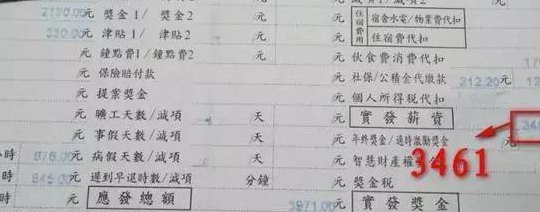 2120.00元 獎金1/ 獎金2 元 宿舍水電/物業費代扣
住宿費用
330.00元 津貼1/ 津貼2 元 住宿費代扣
元 鐘點費1/鐘點費2 元 伙食費消費代扣
元 保險賠付款 元 社保/公積金代繳款 212.20元
元 提案獎金 元 個人所得稅代扣
元 曠工天數/減項 天 元 實發薪資
元 事假天數/減項 天 元 年終獎金/逐時激勵獎金
時 676.00元 病假天數/減項 天 元 智慧財產權 3461
時 845.00元 遲到早退時數/減項 分鐘 元 獎金稅
元 應發總額 3971.00元 實發獎金